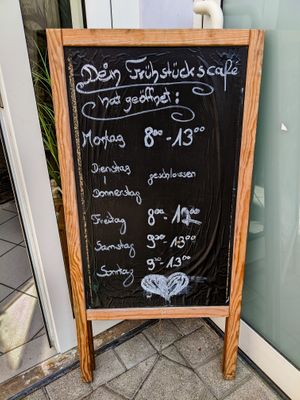 Dein Frühstückscafé
hat geöffnet:
Montag 8⁰⁰-13⁰⁰
Dienstag
geschlossen
Donnerstag
Freitag 8⁰⁰-12⁰⁰
Samstag 9³⁰-13⁰⁰
Sonntag 9³⁰-13⁰⁰